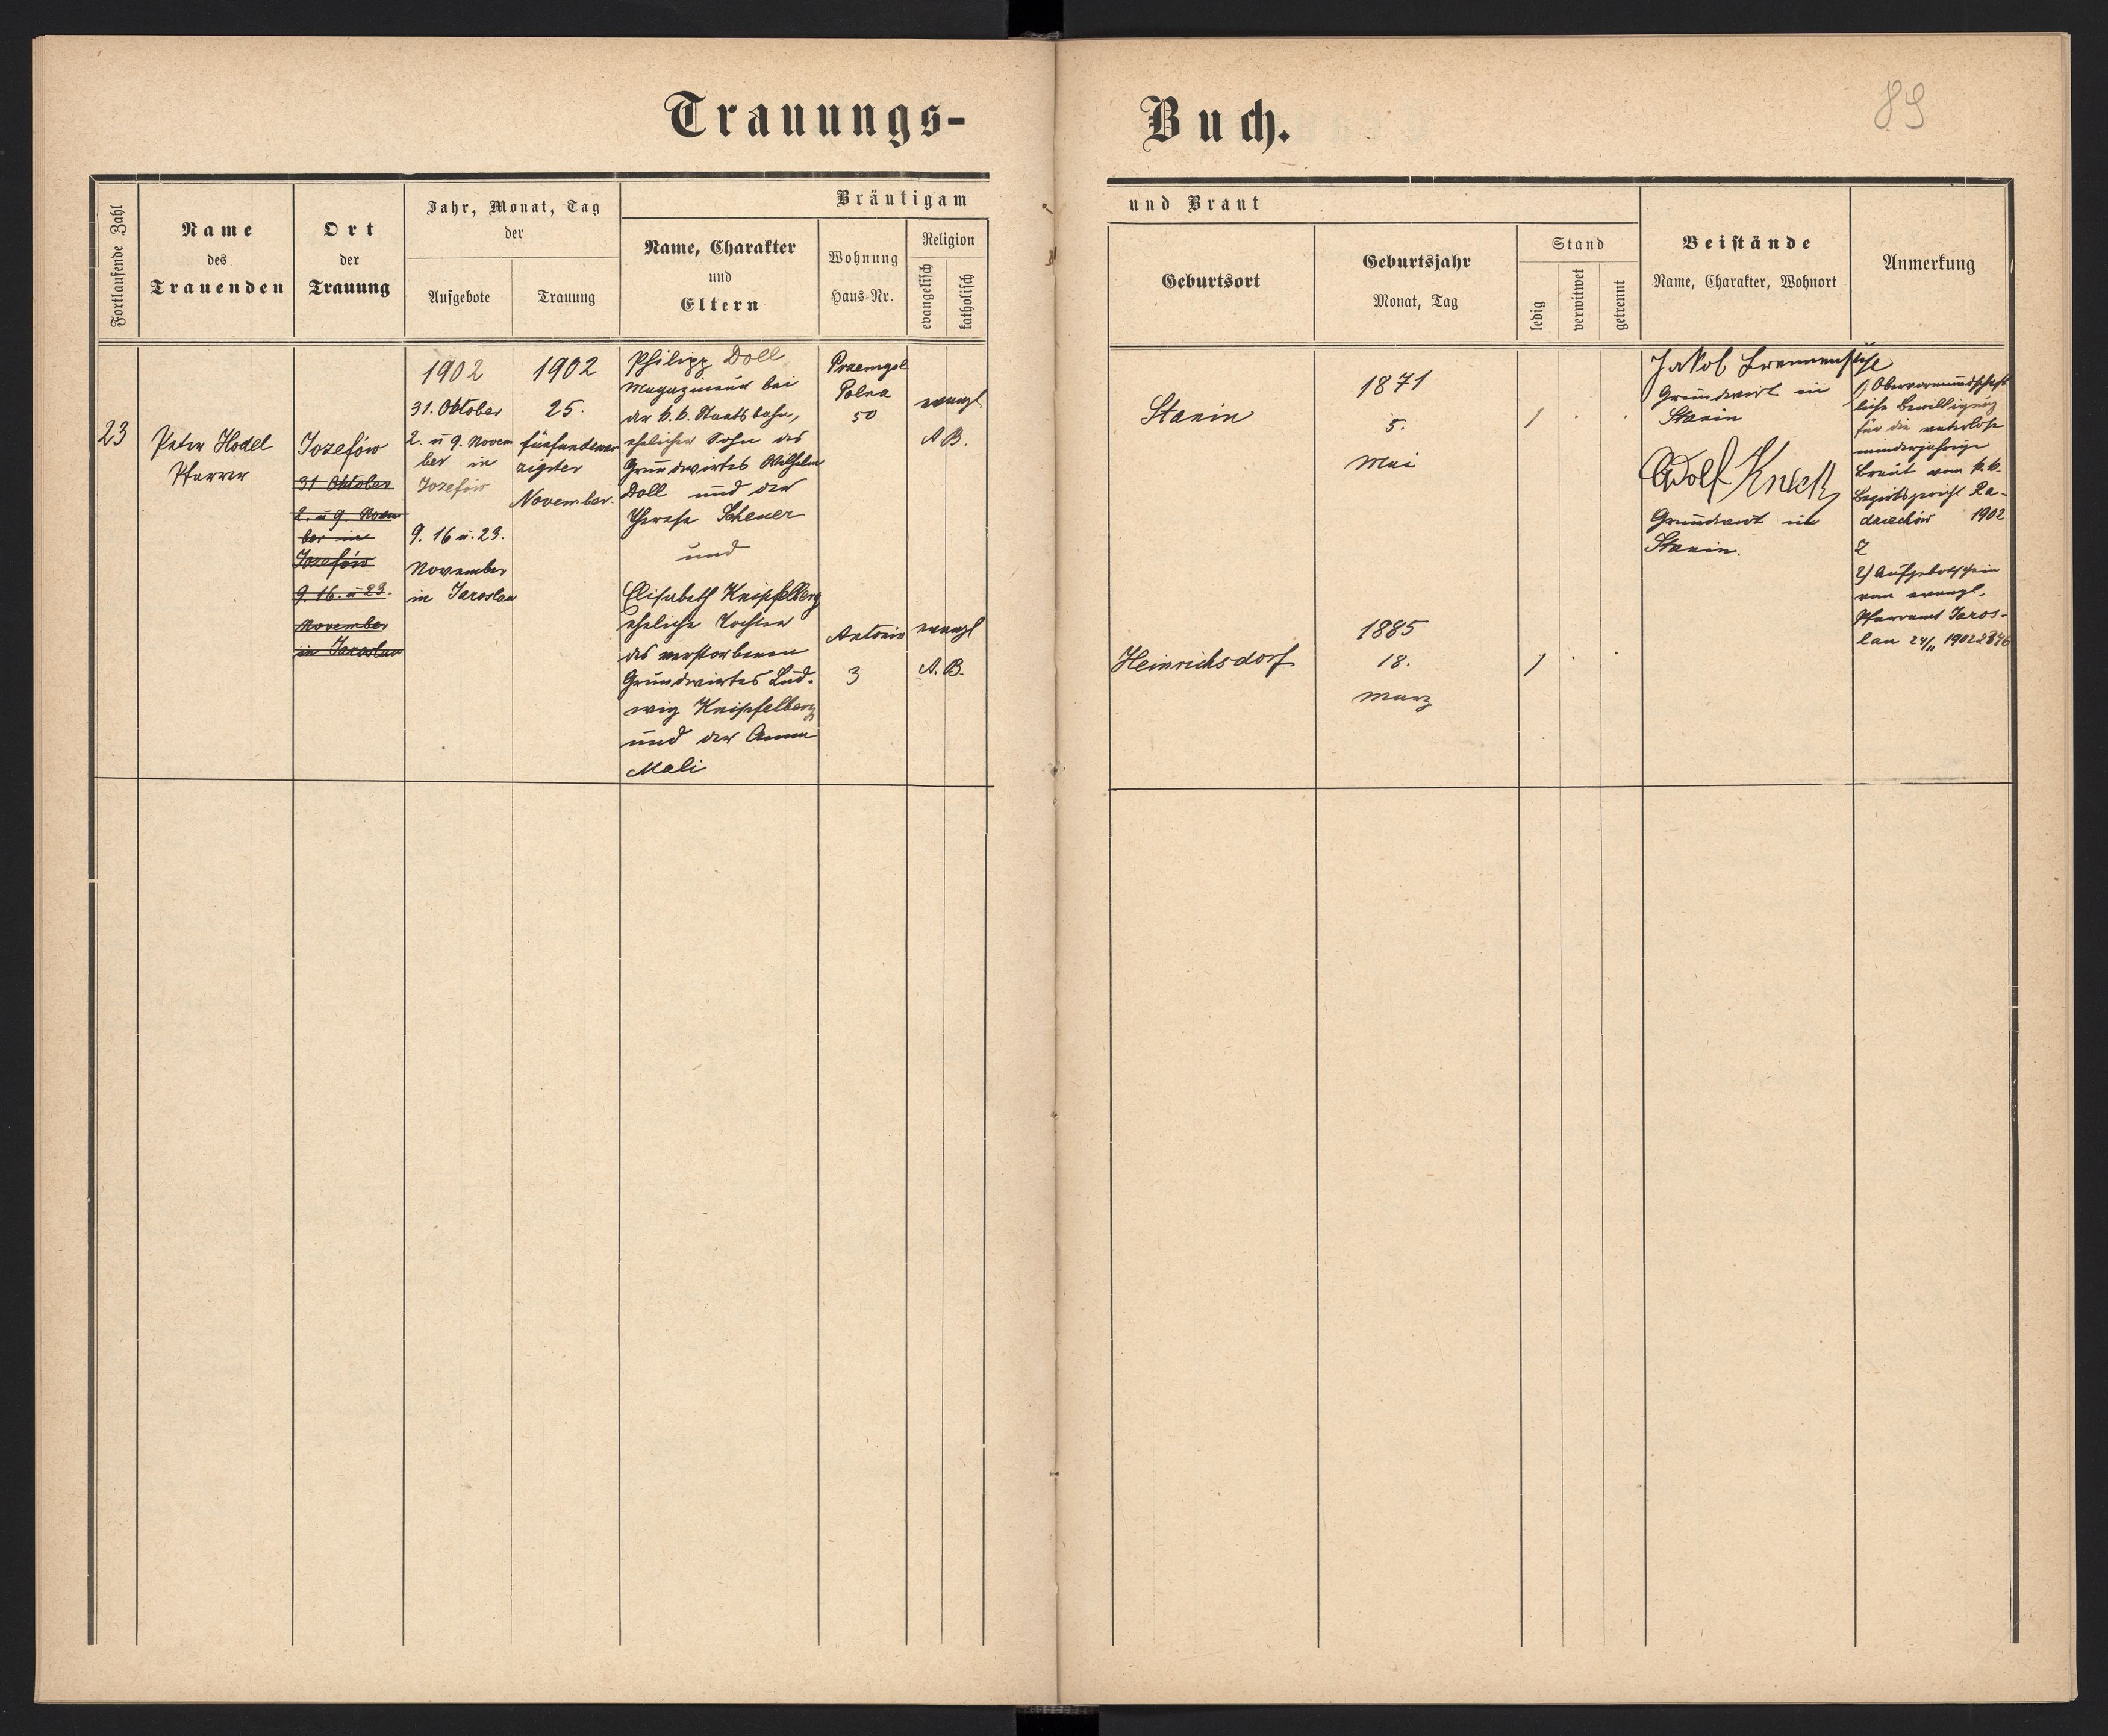 Trauungs-
Buch.
89
Fortlaufende Zahl
Name
des
Trauenden
Ort
der
Trauung
Jahr, Monat, Tag
der
Aufgebote
Trauung
Bräutigam
Name, Charakter
und
Eltern
Wohnung
Haus-Nr.
Religion
evangelisch
katholisch
und Braut
Geburtsort
Geburtsjahr
Monat, Tag
Stand
ledig
verwitwet
getrennt
Beistände
Name, Charakter, Wohnort
Anmerkung
23
Peter Hodel
Pfarrer
Jozefów
31 Oktober
2. u 9. Novem
ber in
Jozefów
9. 16. u 23.
November
in Jaroslau
1902
31. Oktober
2. u 9. Novem
ber in
Jozefów
9. 16 u. 23.
November
in Jaroslau
1902
25.
fünfundzwan
zigster
November.
Philipp Doll
Magazineur bei
der k. k. Staatsbahn,
ehelicher Sohn des
Grundwirtes Wilhelm
Doll und der
Therese Scheuer
und
Elisabeth Knipfelberg
eheliche Tochter
des verstorbenen
Grundwirtes Lud-
wig Knipfelberg
und der Anna
Mali
Przemysl
Polna
50
evangl
A B.
Antonin
3
evangl
A. B.
Stanin
1871
5.
Mai
1
Heinrichsdorf
1885
18.
März
1
Jakob
Grundwirt in
Stanin
Adolf
Grundwirt in
Stanin.
1, Obervormundschaft
liche Bewilligung
für die vaterlose
minderjährige
Braut vom k. k.
Bezirksgericht Ra-
dziechów 1902
2) Aufgebotschein
vom evangl.
Pfarramt Jaros-
lau 24/11 1902